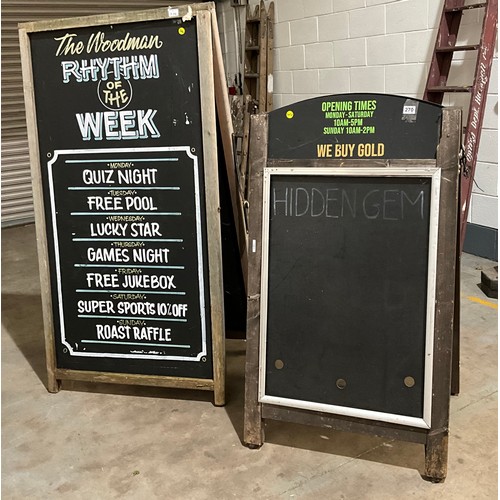 The Woodman
RHYTHM
OF
THE
WEEK
MONDAY
QUIZ NIGHT
TUESDAY
FREE POOL
WEDNESDAY
LUCKY STAR
THURSDAY
GAMES NIGHT
FRIDAY
FREE JUKEBOX
SATURDAY
SUPER SPORTS 10% OFF
SUNDAY
ROAST RAFFLE
OPENING TIMES
MONDAY-SATURDAY
10AM-5PM
SUNDAY 10AM-2PM
WE BUY GOLD
270
HIDDEN GEM